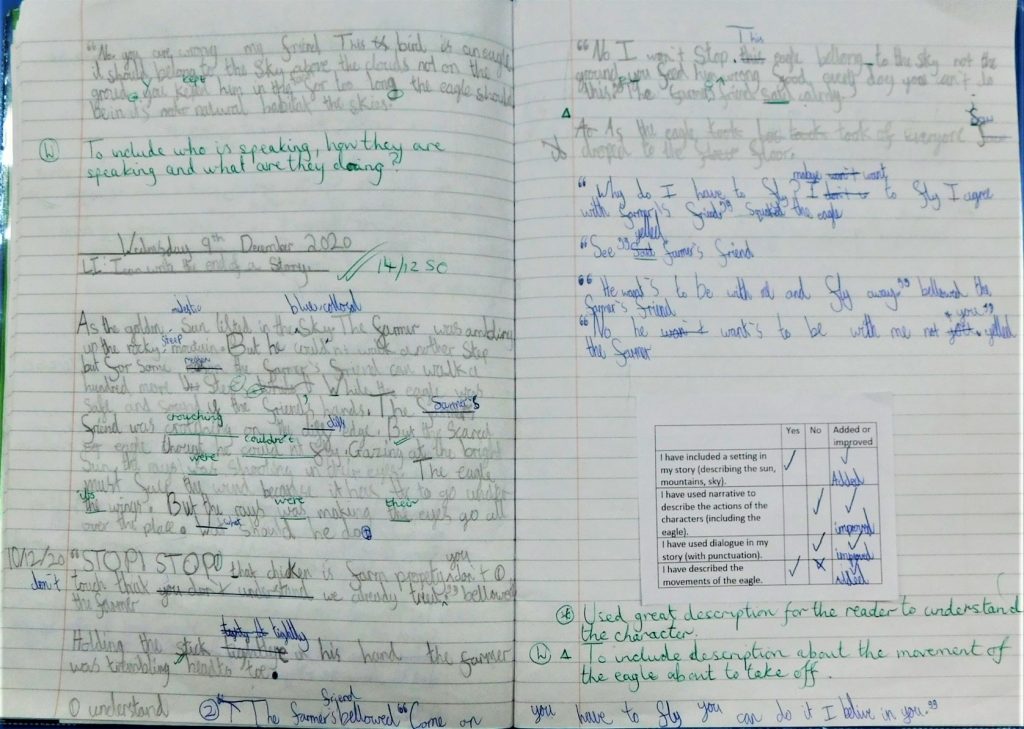 "No you are wrong my friend This is bird is an eagle
it should belong to the Sky above the clouds not on the
ground. You kept him in this for too long the eagle should
be in it's natural habitat the skies."
W To include who is speaking, how they are
speaking and what are they doing?
Wednesday 9th December 2020
LI: I can write the end of a Story.
14/12 SC
majestic blue collosal
As the golden Sun lifted in the Sky. The farmer was ambling
steep
up the rocky mountain. But he couldn't walk another Step
but for some reason the farmer's friend can walk a
hundred more While the eagle was
Safe and sound in the friend's hands. The farmer's
crouching cliff
friend was on the edge. But the Scared
couldn't
eagle thought he fly. Gazing at the bright
were
Sun the rays was shooting in their eyes. The eagle
must the wind because it has to go under
its were their
the wings. But the rays was making the eyes go all
what
over the place. should he do
10/12/20 "STOP! STOP! that chicken is farm property don't ①
you
don't touch that you don't understand we already bellowed
the farmer
tightly
Holding the stick in his hand the farmer
was trembling head to toe.
① understand
friend
② "The farmer's bellowed "Come on
This
"No I won't Stop. this eagle belong to the sky not the
ground you feed him wrong food, every day you can't do
this." The farmer's friend said calmly.
Saw
As As the eagle took took of everyone
droped to the floor.
mabye won't want
"Why do I have to fly? I don't to fly I agree
with farmer's friend" the eagle
yelled
"See" said farmer's friend
"He want's to be with me and fly away." bellowed the
farmer's friend
you"
"No, he won't want's to be with me not yelled
the farmer
Yes No Added or improved
I have included a setting in
my story (describing the sun,
mountains, sky).
Added
I have used narrative to
describe the actions of the
characters (including the
eagle).
improved
I have used dialogue in my
story (with punctuation).
improved
I have described the
movements of the eagle.
added
Used great description for the reader to understand
the character.
W To include description about the movement of
the eagle about to take off.
you have to fly you can do it I belive in you."